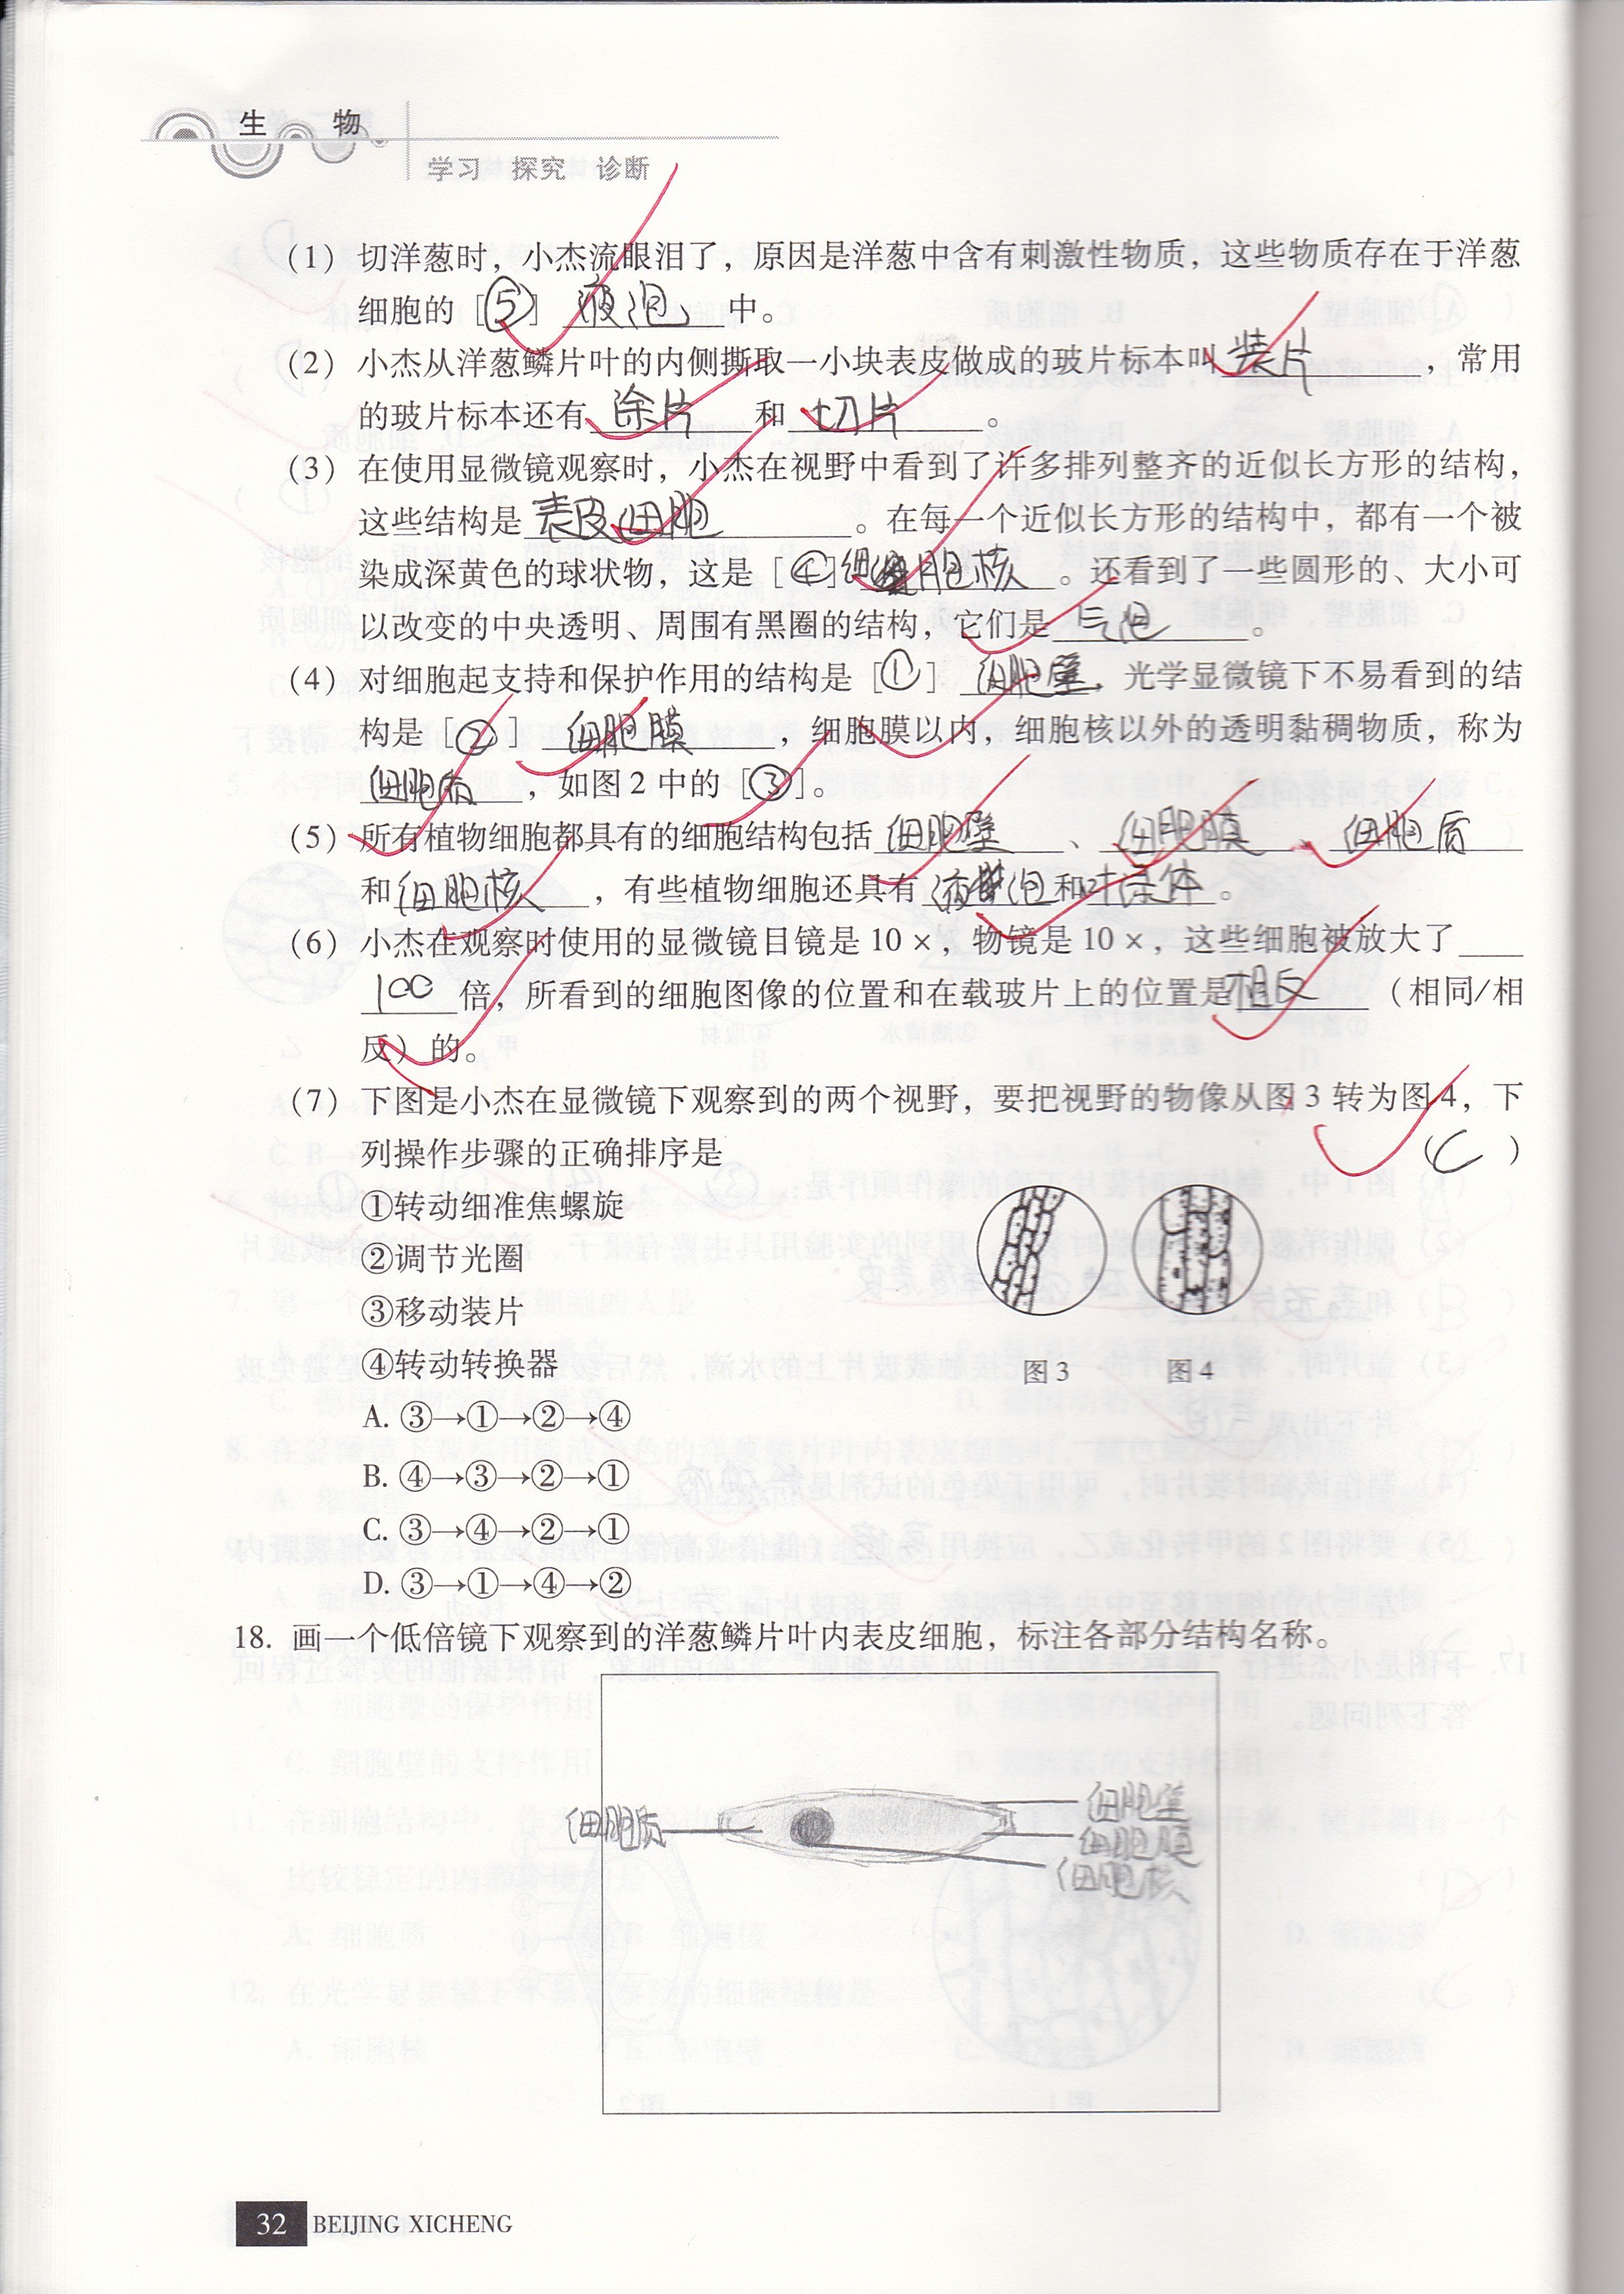 生 物
学习 探究 诊断
（1）切洋葱时，小杰流眼泪了，原因是洋葱中含有刺激性物质，这些物质存在于洋葱
细胞的［⑤］ 液泡 中。
（2）小杰从洋葱鳞片叶的内侧撕取一小块表皮做成的玻片标本叫 装片 ，常用
的玻片标本还有 涂片 和 切片 。
（3）在使用显微镜观察时，小杰在视野中看到了许多排列整齐的近似长方形的结构，
这些结构是 表皮细胞 。在每一个近似长方形的结构中，都有一个被
染成深黄色的球状物，这是［④］细胞核 。还看到了一些圆形的、大小可
以改变的中央透明、周围有黑圈的结构，它们是 气泡 。
（4）对细胞起支持和保护作用的结构是［①］ 细胞壁，光学显微镜下不易看到的结
构是［②］ 细胞膜 ，细胞膜以内，细胞核以外的透明黏稠物质，称为
细胞质 ，如图2中的［③］。
（5）所有植物细胞都具有的细胞结构包括 细胞壁 、 细胞膜 、 细胞质
和 细胞核 ，有些植物细胞还具有 液泡 和 叶绿体 。
（6）小杰在观察时使用的显微镜目镜是10×，物镜是10×，这些细胞被放大了
100 倍，所看到的细胞图像的位置和在载玻片上的位置是 相反 （相同/相
反）的。
（7）下图是小杰在显微镜下观察到的两个视野，要把视野的物像从图3转为图4，下
列操作步骤的正确排序是 （C）
①转动细准焦螺旋
②调节光圈
③移动装片
④转动转换器
图3 图4
A. ③→①→②→④
B. ④→③→②→①
C. ③→④→②→①
D. ③→①→④→②
18. 画一个低倍镜下观察到的洋葱鳞片叶内表皮细胞，标注各部分结构名称。
细胞质 细胞壁
细胞膜
细胞核
32 BEIJING XICHENG